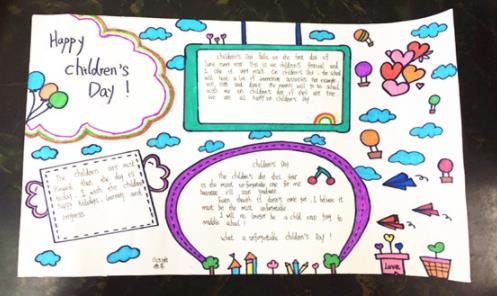 Happy
Children's
Day !
Children's Day falls on the first day of
June each year. This is we children's festival and
I like it very much. On Children's Day, the school
will have a lot of interesting activities for example,
will, sing and dance. My parents will go to school
with me on children's day if they are free
We are all happy on children's day
The children are most
that the day is
today I wish the children
happy holidays, learning and
progress
children's Day
The children's die this year
is the most unforgettable one for me
because I'll soon graduate.
Even though it doesn't come yet, I believe it
must be the most unforgettable.
I will no longer be a child and going to
middle school !
what a unforgettable children's Day !
Love